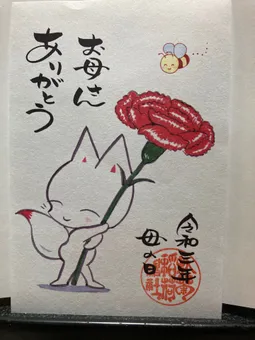 お母さん
ありがとう
令和三年
母の日